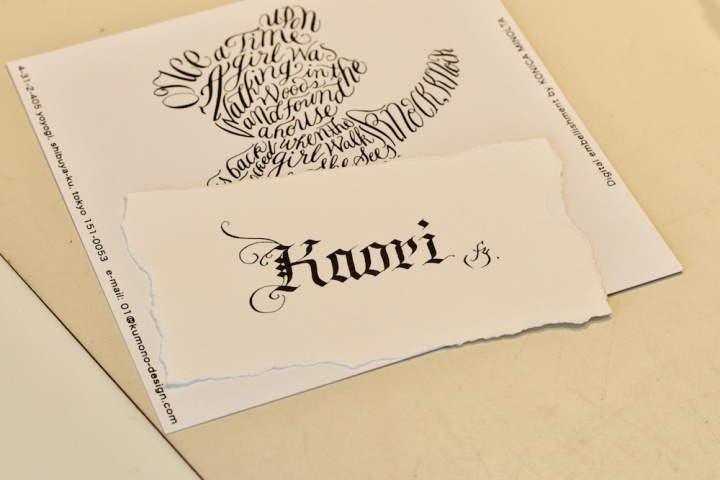 upon
Once a Time
A girl was
Walking in the
Woods
and found
a house
Knock Knock
when the
girl Walk
the Sees.
Kaori
4-31-2-405 yoyogi, shibuya-ku, tokyo 151-0053 e-mail: 01@kumono-design.com
Digital embellishment by KONICA MINOLTA